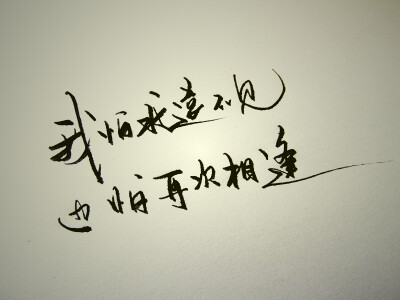 我怕永遠不见
也怕再次相逢